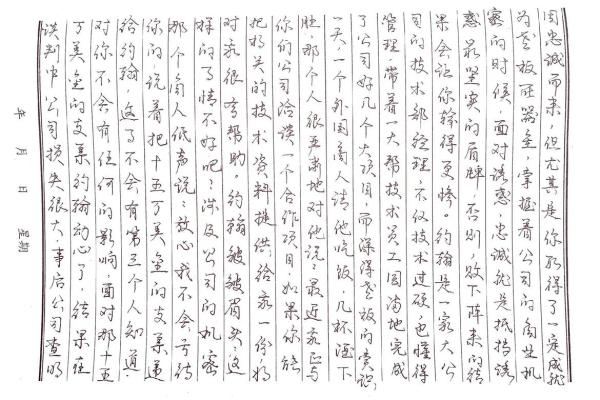 因忠诚而来,但尤其是你取得了一定成就
为老板所器重,掌握着公司的商业机
密的时候,面对诱惑,忠诚就是抵挡诱
惑最坚实的盾牌,否则,败下阵来的结
果会让你输得更惨。约翰是一家大公
司的技术部经理,不仅技术过硬,也懂得
管理,带着一大帮技术员工圆满地完成
了公司好几个大项目,而深得老板的赏识
一天,一个外国商人请他吃饭,几杯酒下
肚,那个人很严肃地对他说:最近我正与
你们公司洽谈一个合作项目,如果你能
把相关的技术资料提供给我一份,将
对我很有帮助。约翰皱皱眉头:这
样的事情不好吧?涉及公司的机密
那个商人低声说:放心我不会亏待
你的说着把十五万美金的支票递
给约翰,这事不会有第三个人知道,
对你不会有任何的影响,面对那十五
万美金的支票约翰动心了,结果在
谈判中公司损失很大,事后公司查明
年 月 日 星期